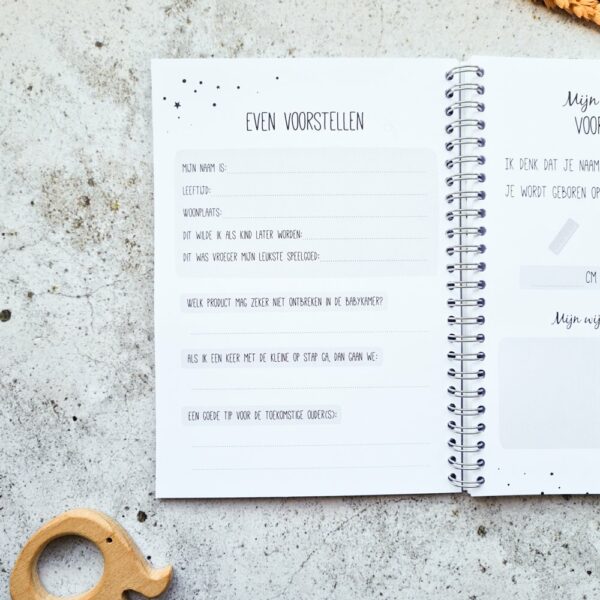 EVEN VOORSTELLEN
MIJN NAAM IS:
LEEFTIJD:
WOONPLAATS:
DIT WILDE IK ALS KIND LATER WORDEN:
DIT WAS VROEGER MIJN LEUKSTE SPEELGOED:
WELK PRODUCT MAG ZEKER NIET ONTBREKEN IN DE BABYKAMER?
ALS IK EEN KEER MET DE KLEINE OP STAP GA, DAN GAAN WE:
EEN GOEDE TIP VOOR DE TOEKOMSTIGE OUDER(S):
Mijn
VOOR
IK DENK DAT JE NAAM
JE WORDT GEBOREN OP
CM
Mijn wij